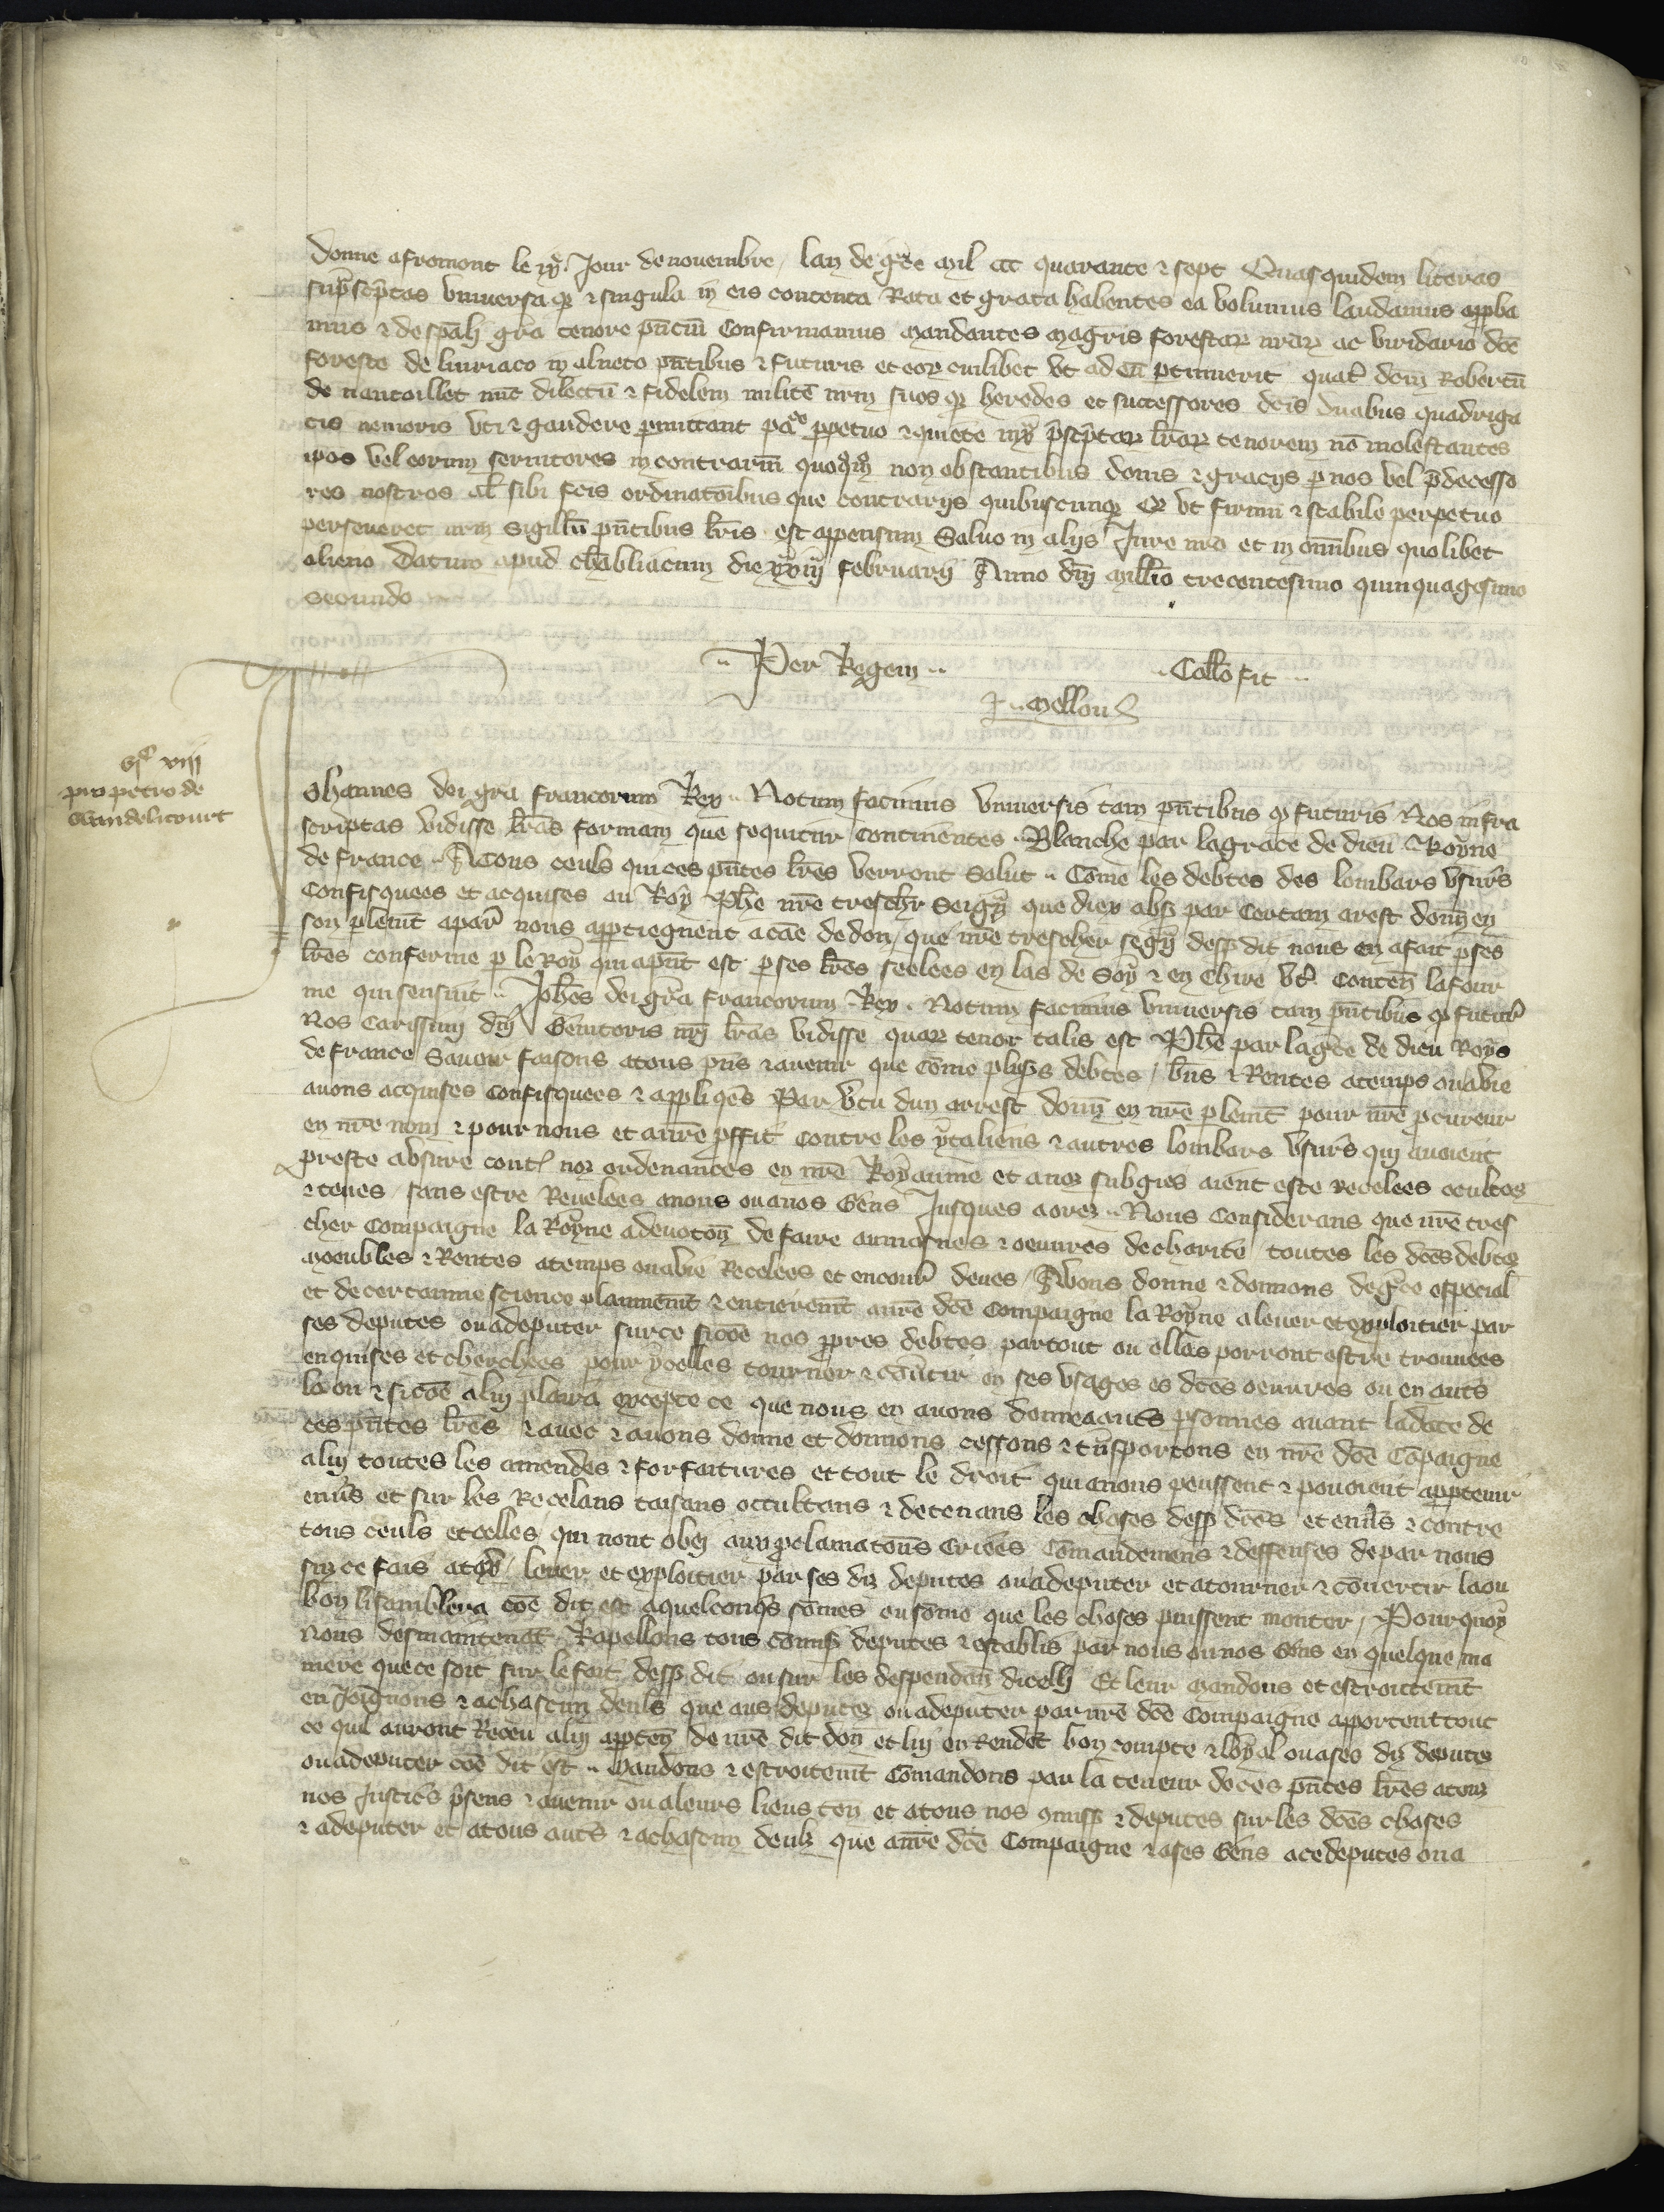 donne a fremont le Jour de novembre / lan de gce mil ccc quarante & sept Quas quidem literas
suprascptas universa qz & singula in eis contenta Rata et grata habentes ea volumus laudamus appba
mus & de spali gra tenore pncium Confirmamus mandantes magris forestar nrar ac viridario dce
foreste de livriaco in alneto pntibus & futuris et eorum cuilibet ut ad eum ptinuerit quatr dom Robertu
de nantoillet nuc dilectu & fidelem milite nrm suos qz heredes et successores dcis duabus quadriga
tis nemoris uti & gaudere pmittant ppetuo & quiete prescptar lrar tenorem no molestantes
ipos vel eorum servitores in contrarium non obstantibus donis & gracijs p nos vel pdecesso
res nostros al sibi fcis ordinatoibus que contrarijs quibuscunqz Qz ut firmu & stabile perpetuo
perseveret nrm sigillu pntibus lris est appensum Salvo in alijs Jure nro et in omibus quolibet
alieno Datum apud chabliacum die februarij Anno dni millio trecentesimo quinquagesimo
secundo
Per Regem Collo fit
J. Mellou
viij
pro petro de
Johannes dei gra francorum Rex Notum facimus universis tam pntibus qz futuris Nos infra
scriptas vidisse lras formam que sequitur continentes Blanche par la grace de dieu Royne
de france A tous ceuls qui ces pntes lres verront Salut Come les debtes des lombars usurs
confisquees et acquises au Roy Phe nre treschr Seign que diex abs par certain arest donn en
son plemt apar nous apptiegnent a cae de don / que nre trescher segn dess dit nous en a fait p ses
lres conferme p le Roy qui apnt est p ses lres seelees en las de Soy & en Chire vt conten la four
me qui sensuit Johes dei gra francorum Rex Notum facimus universis tam pntibus qz futur
Nos Carissimi dni Genitoris nri lras vidisse quar tenor talis est Phe par la gce de dieu Roys
de france Savoir faisons a tous pns & avenir que come pluss debtes / bns & Rentes a temps ou a vie
avons acquises confisquees & appliqes Par vtu dun arrest donn en nre plemt pour nre pcureur
en nre nom & pour nous et a nre pffit contre les ytaliens & autres lombars usurs qui avoient
preste a usure cont noz ordenances en nre Royaume et a noz subgies aient este recelees ocultes
& teues / sans estre Revelees a nous ou a nos Gens Jusques a orez Nous considerans que nre tres
cher compaigne la Royne a devocon de faire aumosnes & oeuvres de charite toutes les dces debtes
moeubles & Rentes a temps ou a vie Recelees et encour deues / Avons donne & donnons de gce especial
et de certainne science plainnemt & entieremt a nre dce compaigne la Royne a lever et exploitier par
ses deputes ou a deputer sur ce sicoe nos ppres debtes partout ou elles porront estre trouvees
enquises et cherchees pour ycelles tourner & covtir en ses usages es dces oeuvres ou en auts
la ou & sicoe a lui plaira excepte ce que nous en avons donne a auts psonnes avant la date de
ces pntes lres & avec & avons donne et donnons cessons & tnsportons en nre dce compaigne
a lui toutes les amendes & forfaitures et tout le droit qui a nous peussent & povoient apptenir
envs et sur les Recelans taisans occultans & detenans les choses dess dces et envs & contre
tous ceuls et celles qui nont obey aux pclamatons criees comandemens & deffenses de par nous
sur ce fais / lever et exploitier par ses diz deputes ou a deputer et a tourner & covertir la ou
bon li semblera coe dit est a quelconqs somes ou some que les choses puissent monter / Pour quoy
nous desmaintenat Rapellons tous comis deputes & establis par nous ou nos Gens en quelque ma
niere que ce soit sur le fait dess dit ou sur les despendan dicelli Et leur mandons et estroitemt
en Joignons & a chascun deuls que aus deputez ou a deputer par nre dce compaigne apportent tout
ce qui auront Receu a lui appten de nre dit don et lui en Rendet bon compte & loyal ou a ses diz deputes
ou a deputer coe dit est Mandons & estroitemt comandons par la teneur de ces pntes lres a tous
nos Justics psens & avenir ou a leurs lieus ten et a tous nos comiss & deputes sur les dces choses
& a deputer et a tous auts & a chascun deulz que a nre dce compaigne & a ses Gens a ce deputes ou a